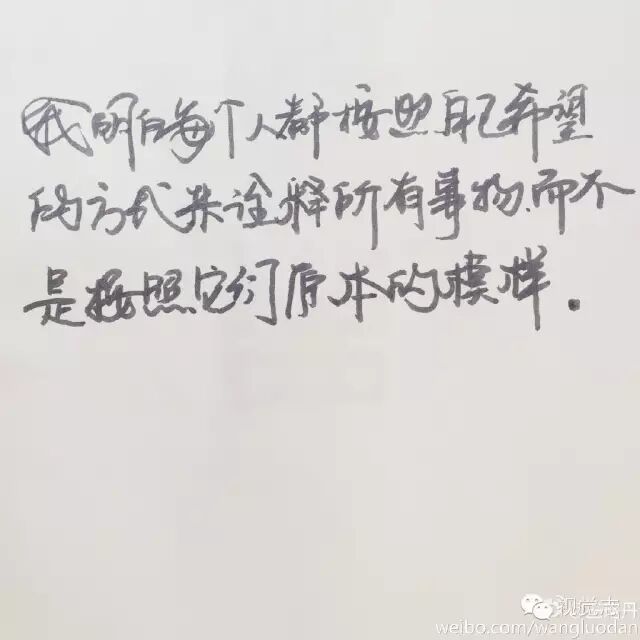 我明白每个人都按照自己希望
的方式来诠释所有事物、而不
是按照它们原本的模样.
视觉志
丹
weibo.com/wangluodan